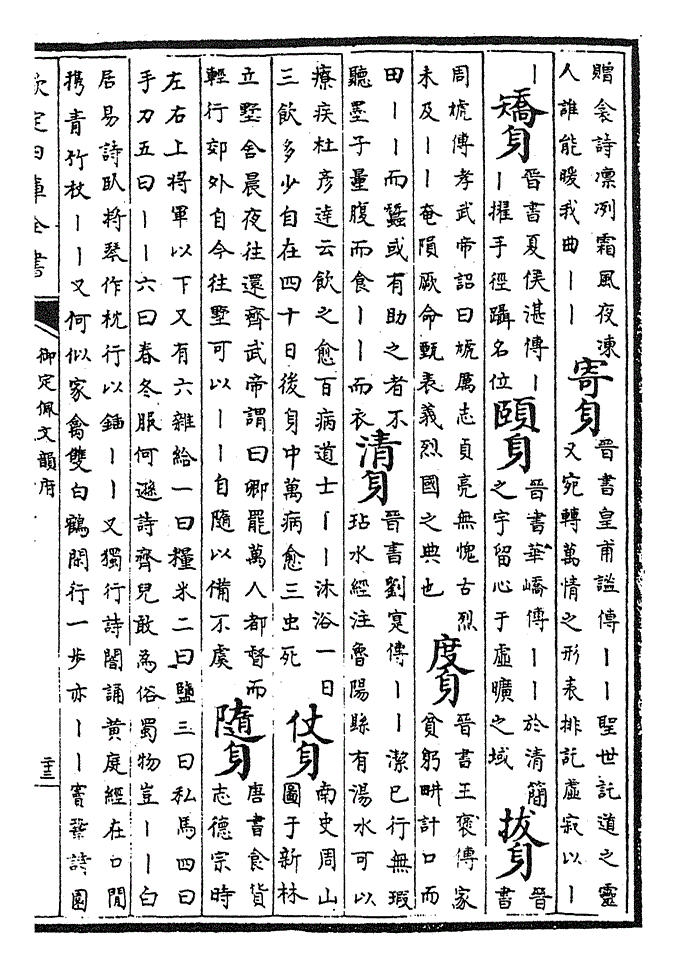 贈衾詩凛冽霜風夜凍
人誰能暖我曲丨丨
寄身
晉書皇甫謐傳丨丨聖世託道之靈
又宛轉萬情之形表排託虛寂以丨
丨
矯身
晉書夏侯湛傳丨
丨擢手徑躡名位
頤身
晉書華嶠傳丨丨於清簡
之宇留心于虛曠之域
拔身
晉
書
周虓傳孝武帝詔曰虓厲志貞亮無愧古烈
未及丨丨奄隕厥命甄表義烈國之典也
度身
晉書王褒傳家
貧躬畊計口而
田丨丨而蠶或有助之者不
聽墨子量腹而食丨丨而衣
清身
晉書劉寔傳丨丨潔已行無瑕
玷水經注魯陽縣有湯水可以
療疾杜彥逹云飲之愈百病道士丨丨沐浴一日
三飲多少自在四十日後身中萬病愈三虫死
仗身
南史周山
圖于新林
立墅舍晨夜往還齊武帝謂曰卿罷萬人都督而
輕行郊外自今往墅可以丨丨自隨以備不虞
隨身
唐書食貨
志德宗時
左右上將軍以下又有六雜給一曰糧米二曰鹽三曰私馬四曰
手力五曰丨丨六曰春冬服何遜詩齊兒敢為俗蜀物豈丨丨白
居易詩臥將琴作枕行以鍤丨丨又獨行詩闇誦黄庭經在口閒
携青竹杖丨丨又何似家禽雙白鶴閑行一步亦丨丨竇鞏詩園
欽定四庫全書
御定佩文韻府
二十三